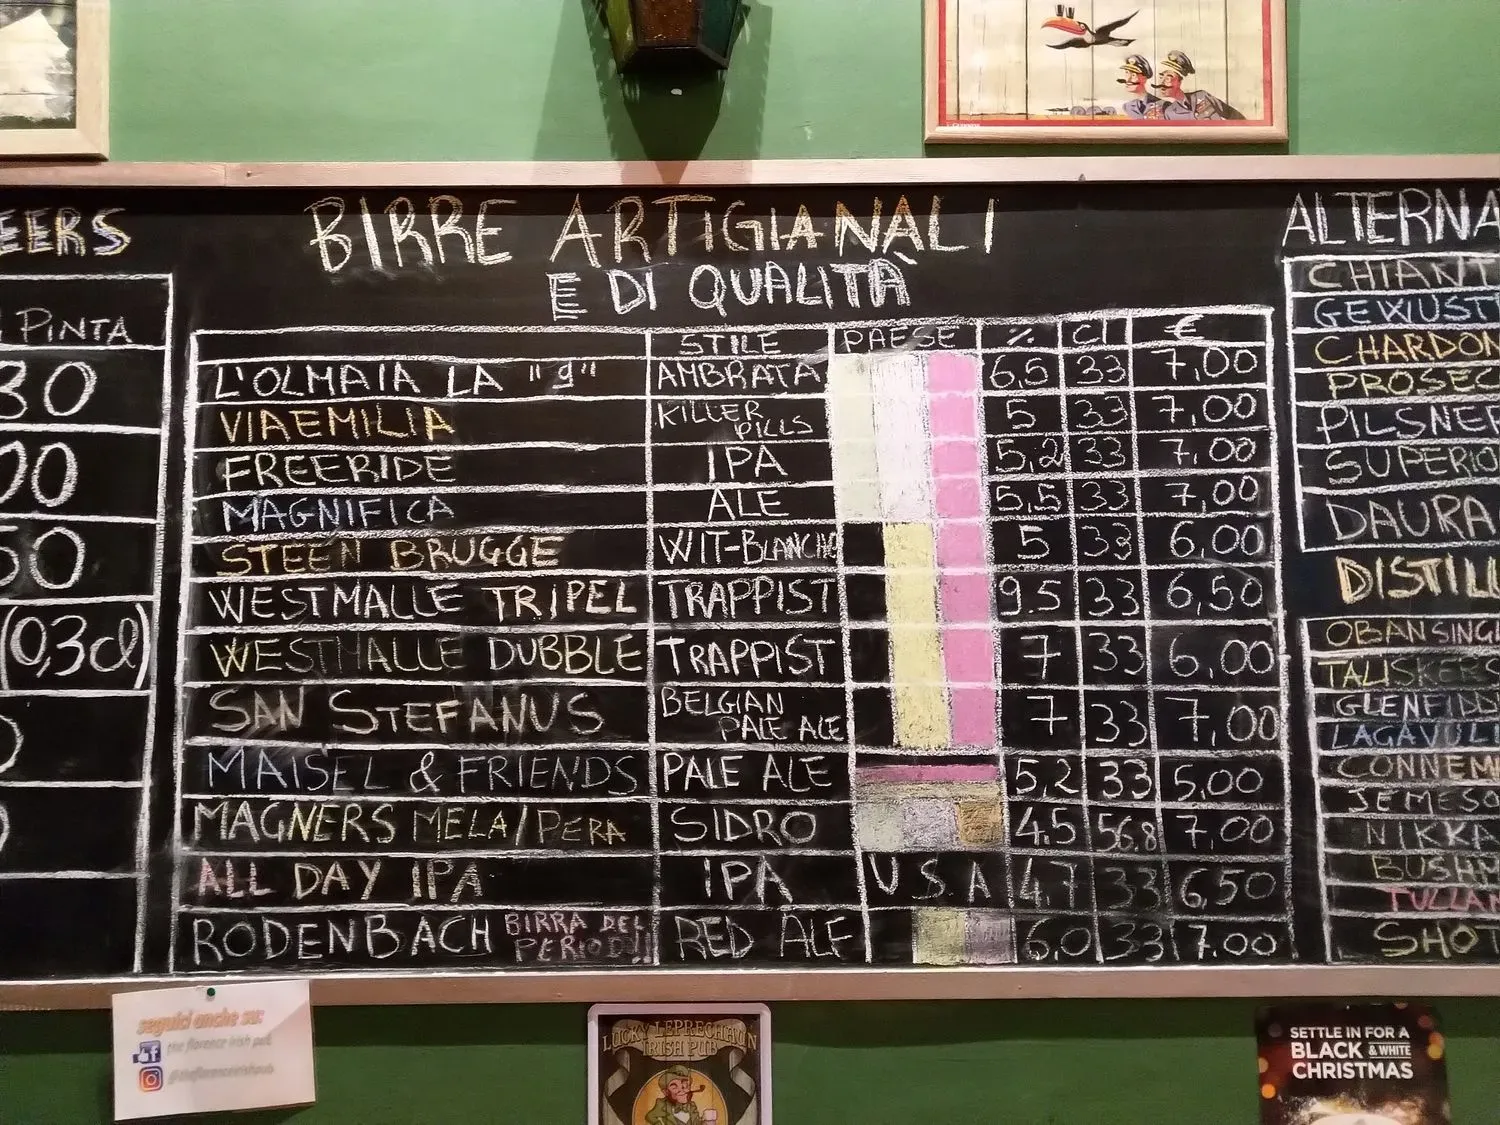 EERS
PINTA
30
00
50
(0,3cl)
BIRRE ARTIGIANALI
E DI QUALITÀ
STILE PAESE % Cl €
L'OLMAIA LA "9" AMBRATA 6,5 33 7,00
VIAEMILIA KILLER PILLS 5 33 7,00
FREERIDE IPA 5,2 33 7,00
MAGNIFICA ALE 5,5 33 7,00
STEEN BRUGGE WIT-BLANCHE 5 33 6,00
WESTMALLE TRIPEL TRAPPIST 9.5 33 6,50
WESTMALLE DUBBLE TRAPPIST 7 33 6,00
SAN STEFANUS BELGIAN PALE ALE 7 33 7,00
MAISEL & FRIENDS PALE ALE 5,2 33 5,00
MAGNERS MELA/PERA SIDRO 4.5 56.8 7,00
ALL DAY IPA IPA U.S.A 4,7 33 6,50
RODENBACH BIRRA DEL PERIODO!! RED ALE 6,0 33 7.00
ALTERNA
CHIANT
GEWUST
CHARDON
PROSEC
PILSNER
SUPERIO
DAURA
DISTILL
OBAN SINGL
TALISKERS
GLENFIDD
LAGAVULI
CONNEM
JEMESO
NIKKA
BUSHM
TULLA
SHOT
seguici anche su:
the florence irish pub
LUCKY LEPRECHAUN
IRISH PUB
SETTLE IN FOR A
BLACK & WHITE
CHRISTMAS